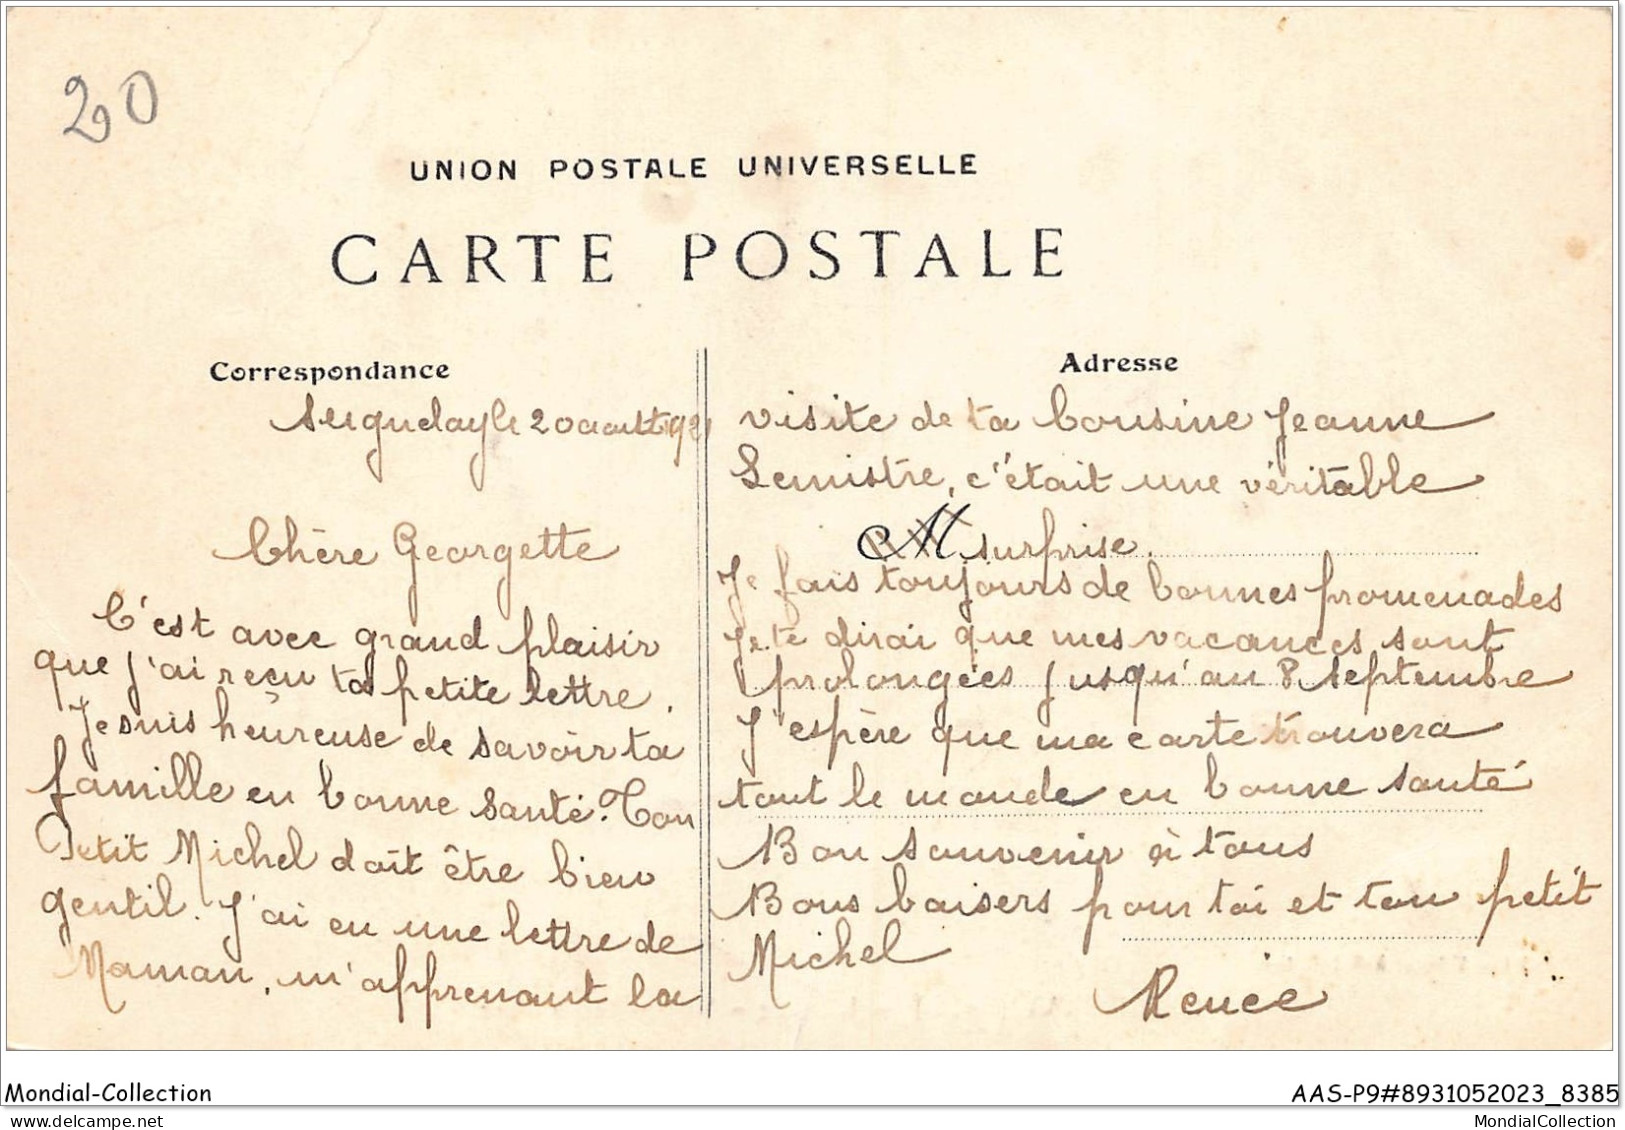 20
UNION POSTALE UNIVERSELLE
CARTE POSTALE
Correspondance
Seignelay le 20 août 192
Chère Georgette
C'est avec grand plaisir
que j'ai reçu ta petite lettre.
Je suis heureuse de savoir ta
famille en bonne santé. Ton
Petit Michel doit être bien
gentil. J'ai eu une lettre de
Maman, m'apprenant la
Adresse
visite de ta Cousine Jeanne
Lemistre, c'était une véritable
M surprise.
Je fais toujours de bonnes promenades
Je te dirai que mes vacances sont
prolongées jusqu'au 8 septembre
J'espère que ma carte trouvera
tout le monde en bonne santé
Bon souvenir à tous
Bons baisers pour toi et ton petit
Michel
Renée
Mondial-Collection
AAS-P9#8931052023_8385
MondialCollection